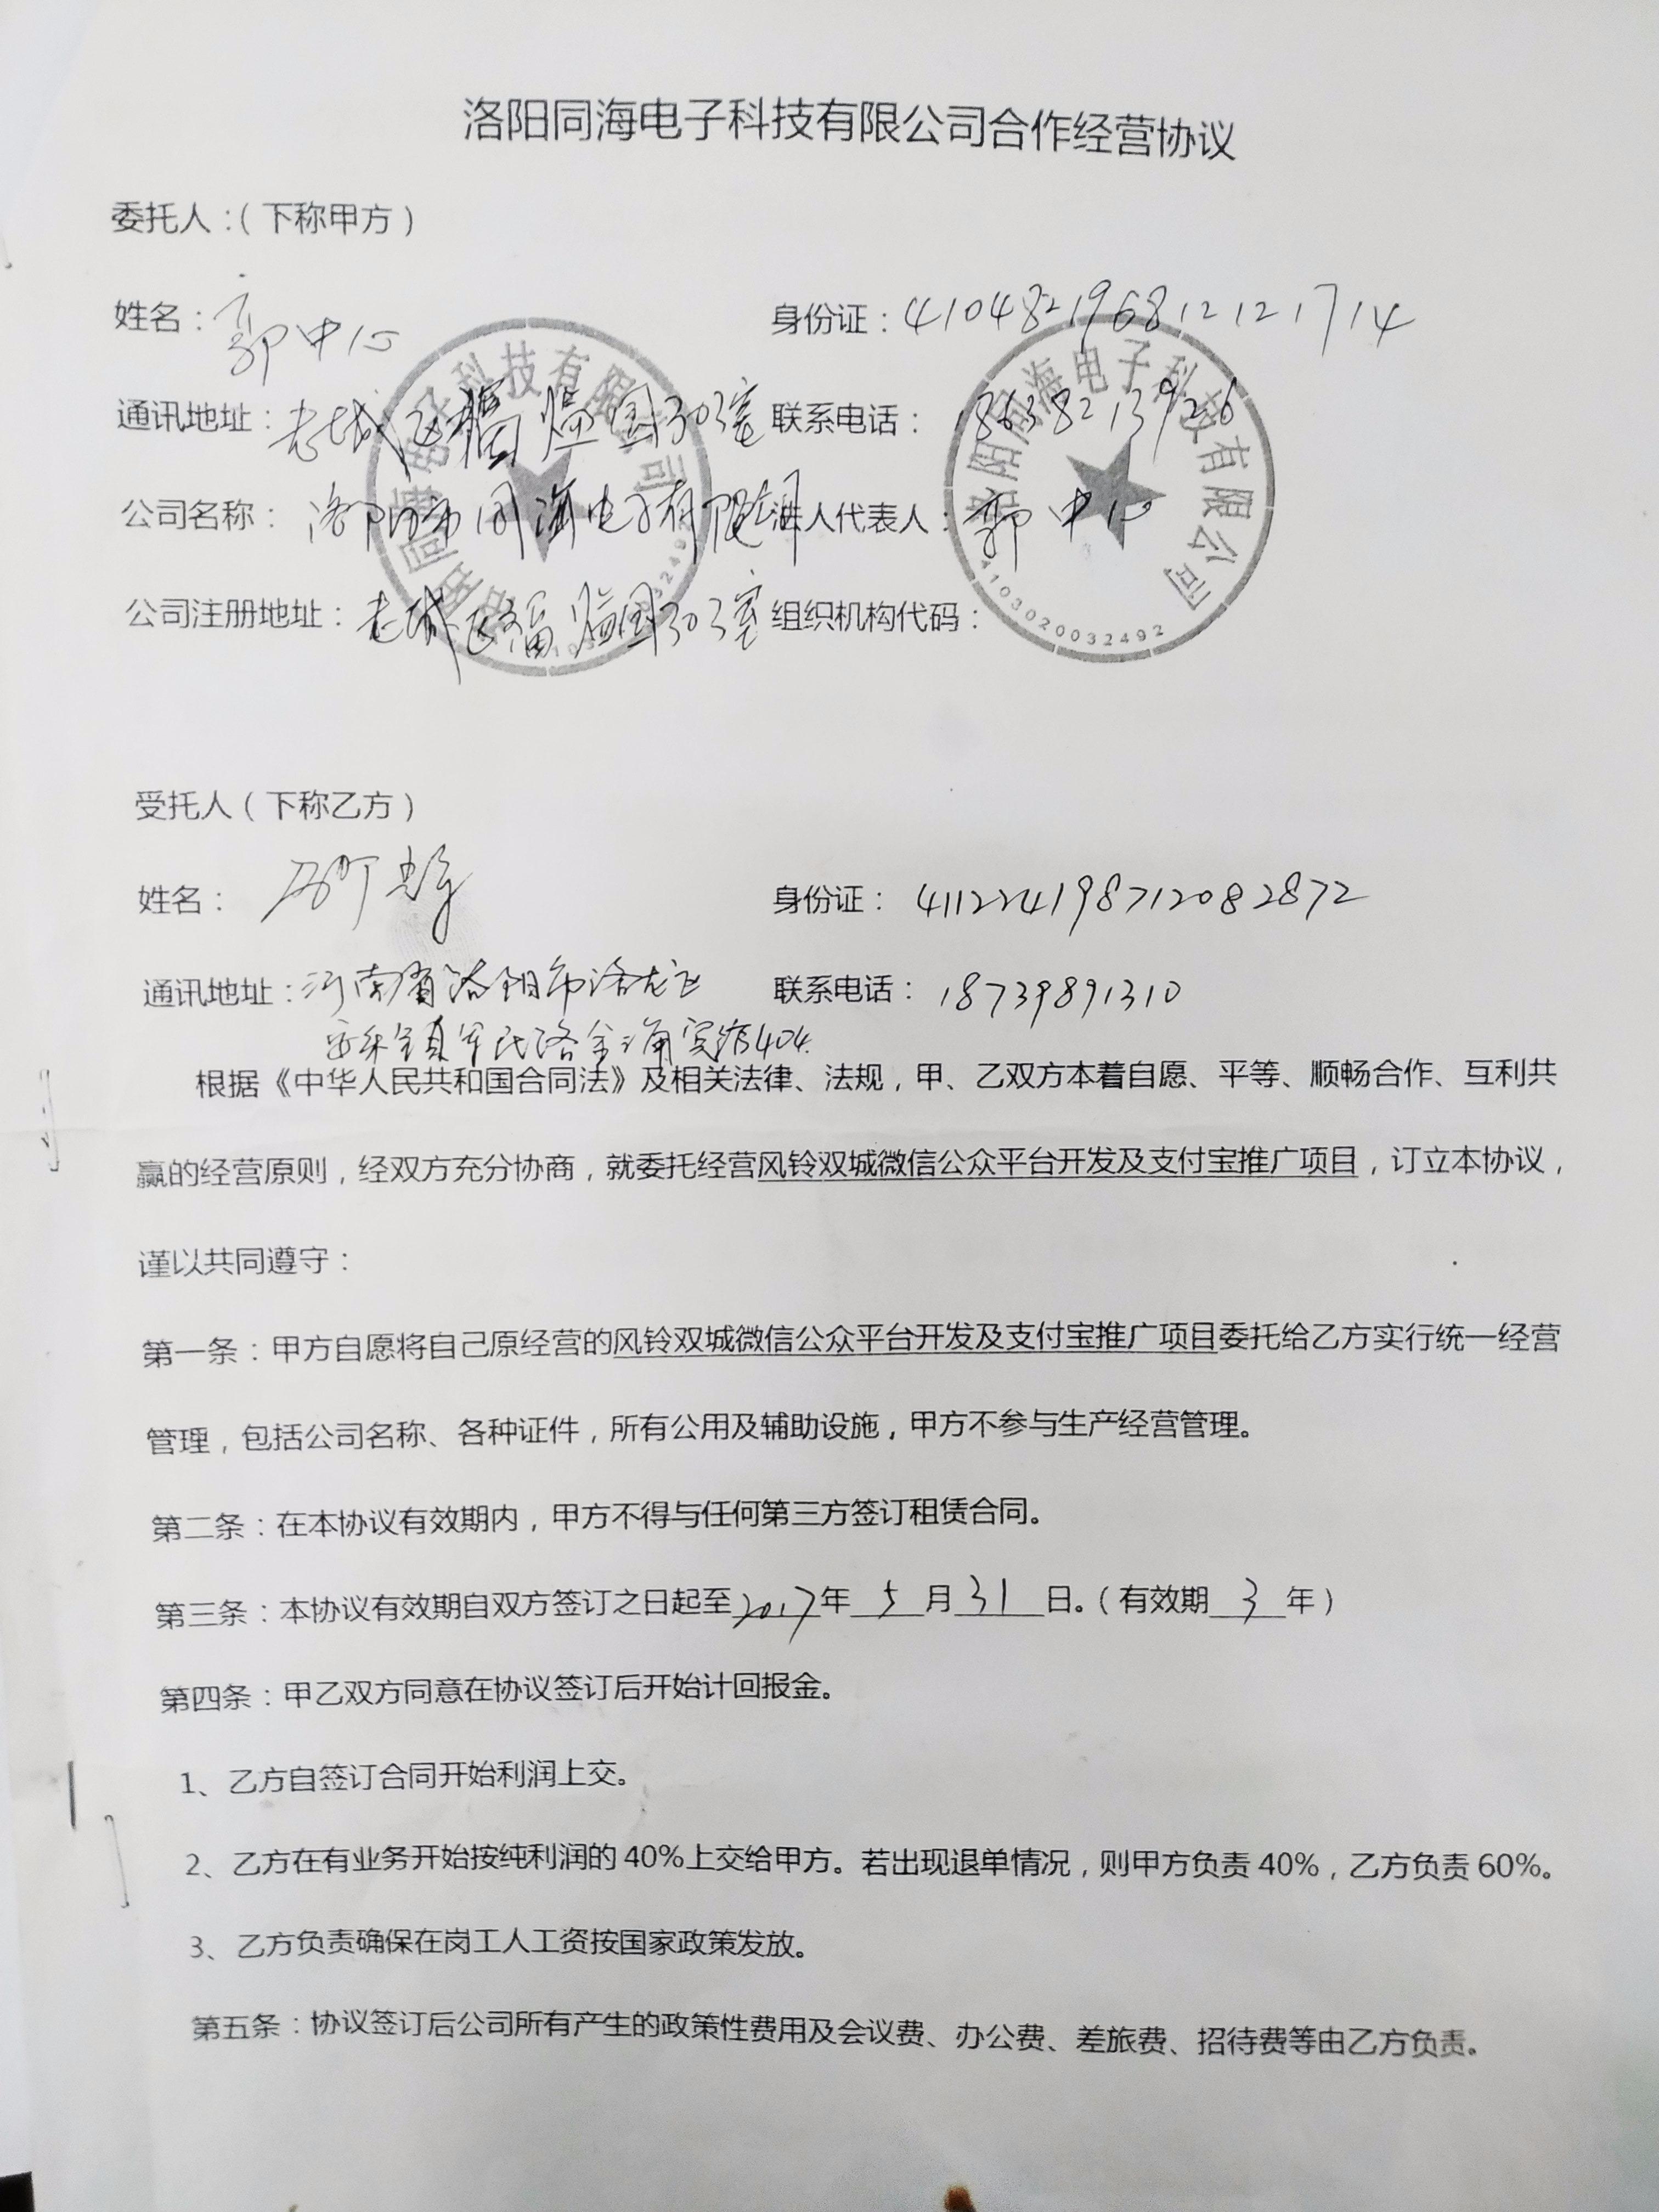 洛阳同海电子科技有限公司合作经营协议
委托人：（下称甲方）
姓名：郭中心 身份证：410482196812121714
通讯地址：老城区福 国303室 联系电话：18638213926
公司名称：洛阳市同海电子有限 法人代表人：郭中心
公司注册地址：老城区福 国303室 组织机构代码：
洛阳同海电子科技有限公司
4103020032492
受托人（下称乙方）
姓名： 身份证：411224198712082872
通讯地址：河南省洛阳市洛龙区 联系电话：18739891310
镇军民路 宾馆404
根据《中华人民共和国合同法》及相关法律、法规，甲、乙双方本着自愿、平等、顺畅合作、互利共
赢的经营原则，经双方充分协商，就委托经营风铃双城微信公众平台开发及支付宝推广项目，订立本协议，
谨以共同遵守：
第一条：甲方自愿将自己原经营的风铃双城微信公众平台开发及支付宝推广项目委托给乙方实行统一经营
管理，包括公司名称、各种证件，所有公用及辅助设施，甲方不参与生产经营管理。
第二条：在本协议有效期内，甲方不得与任何第三方签订租赁合同。
第三条：本协议有效期自双方签订之日起至2017年5月31日。（有效期3年）
第四条：甲乙双方同意在协议签订后开始计回报金。
1、乙方自签订合同开始利润上交。
2、乙方在有业务开始按纯利润的40%上交给甲方。若出现退单情况，则甲方负责40%，乙方负责60%。
3、乙方负责确保在岗工人工资按国家政策发放。
第五条：协议签订后公司所有产生的政策性费用及会议费、办公费、差旅费、招待费等由乙方负责。